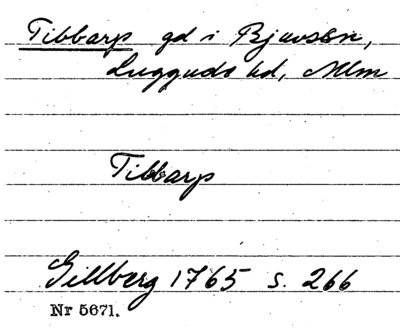 Tibbarp gd i Bjuvs sn,
Luggude hd, Mlm
Tibbarp
Gillberg 1765 s. 266
Nr 5671.